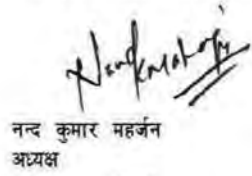 नन्द कुमार महर्जन
अध्यक्ष